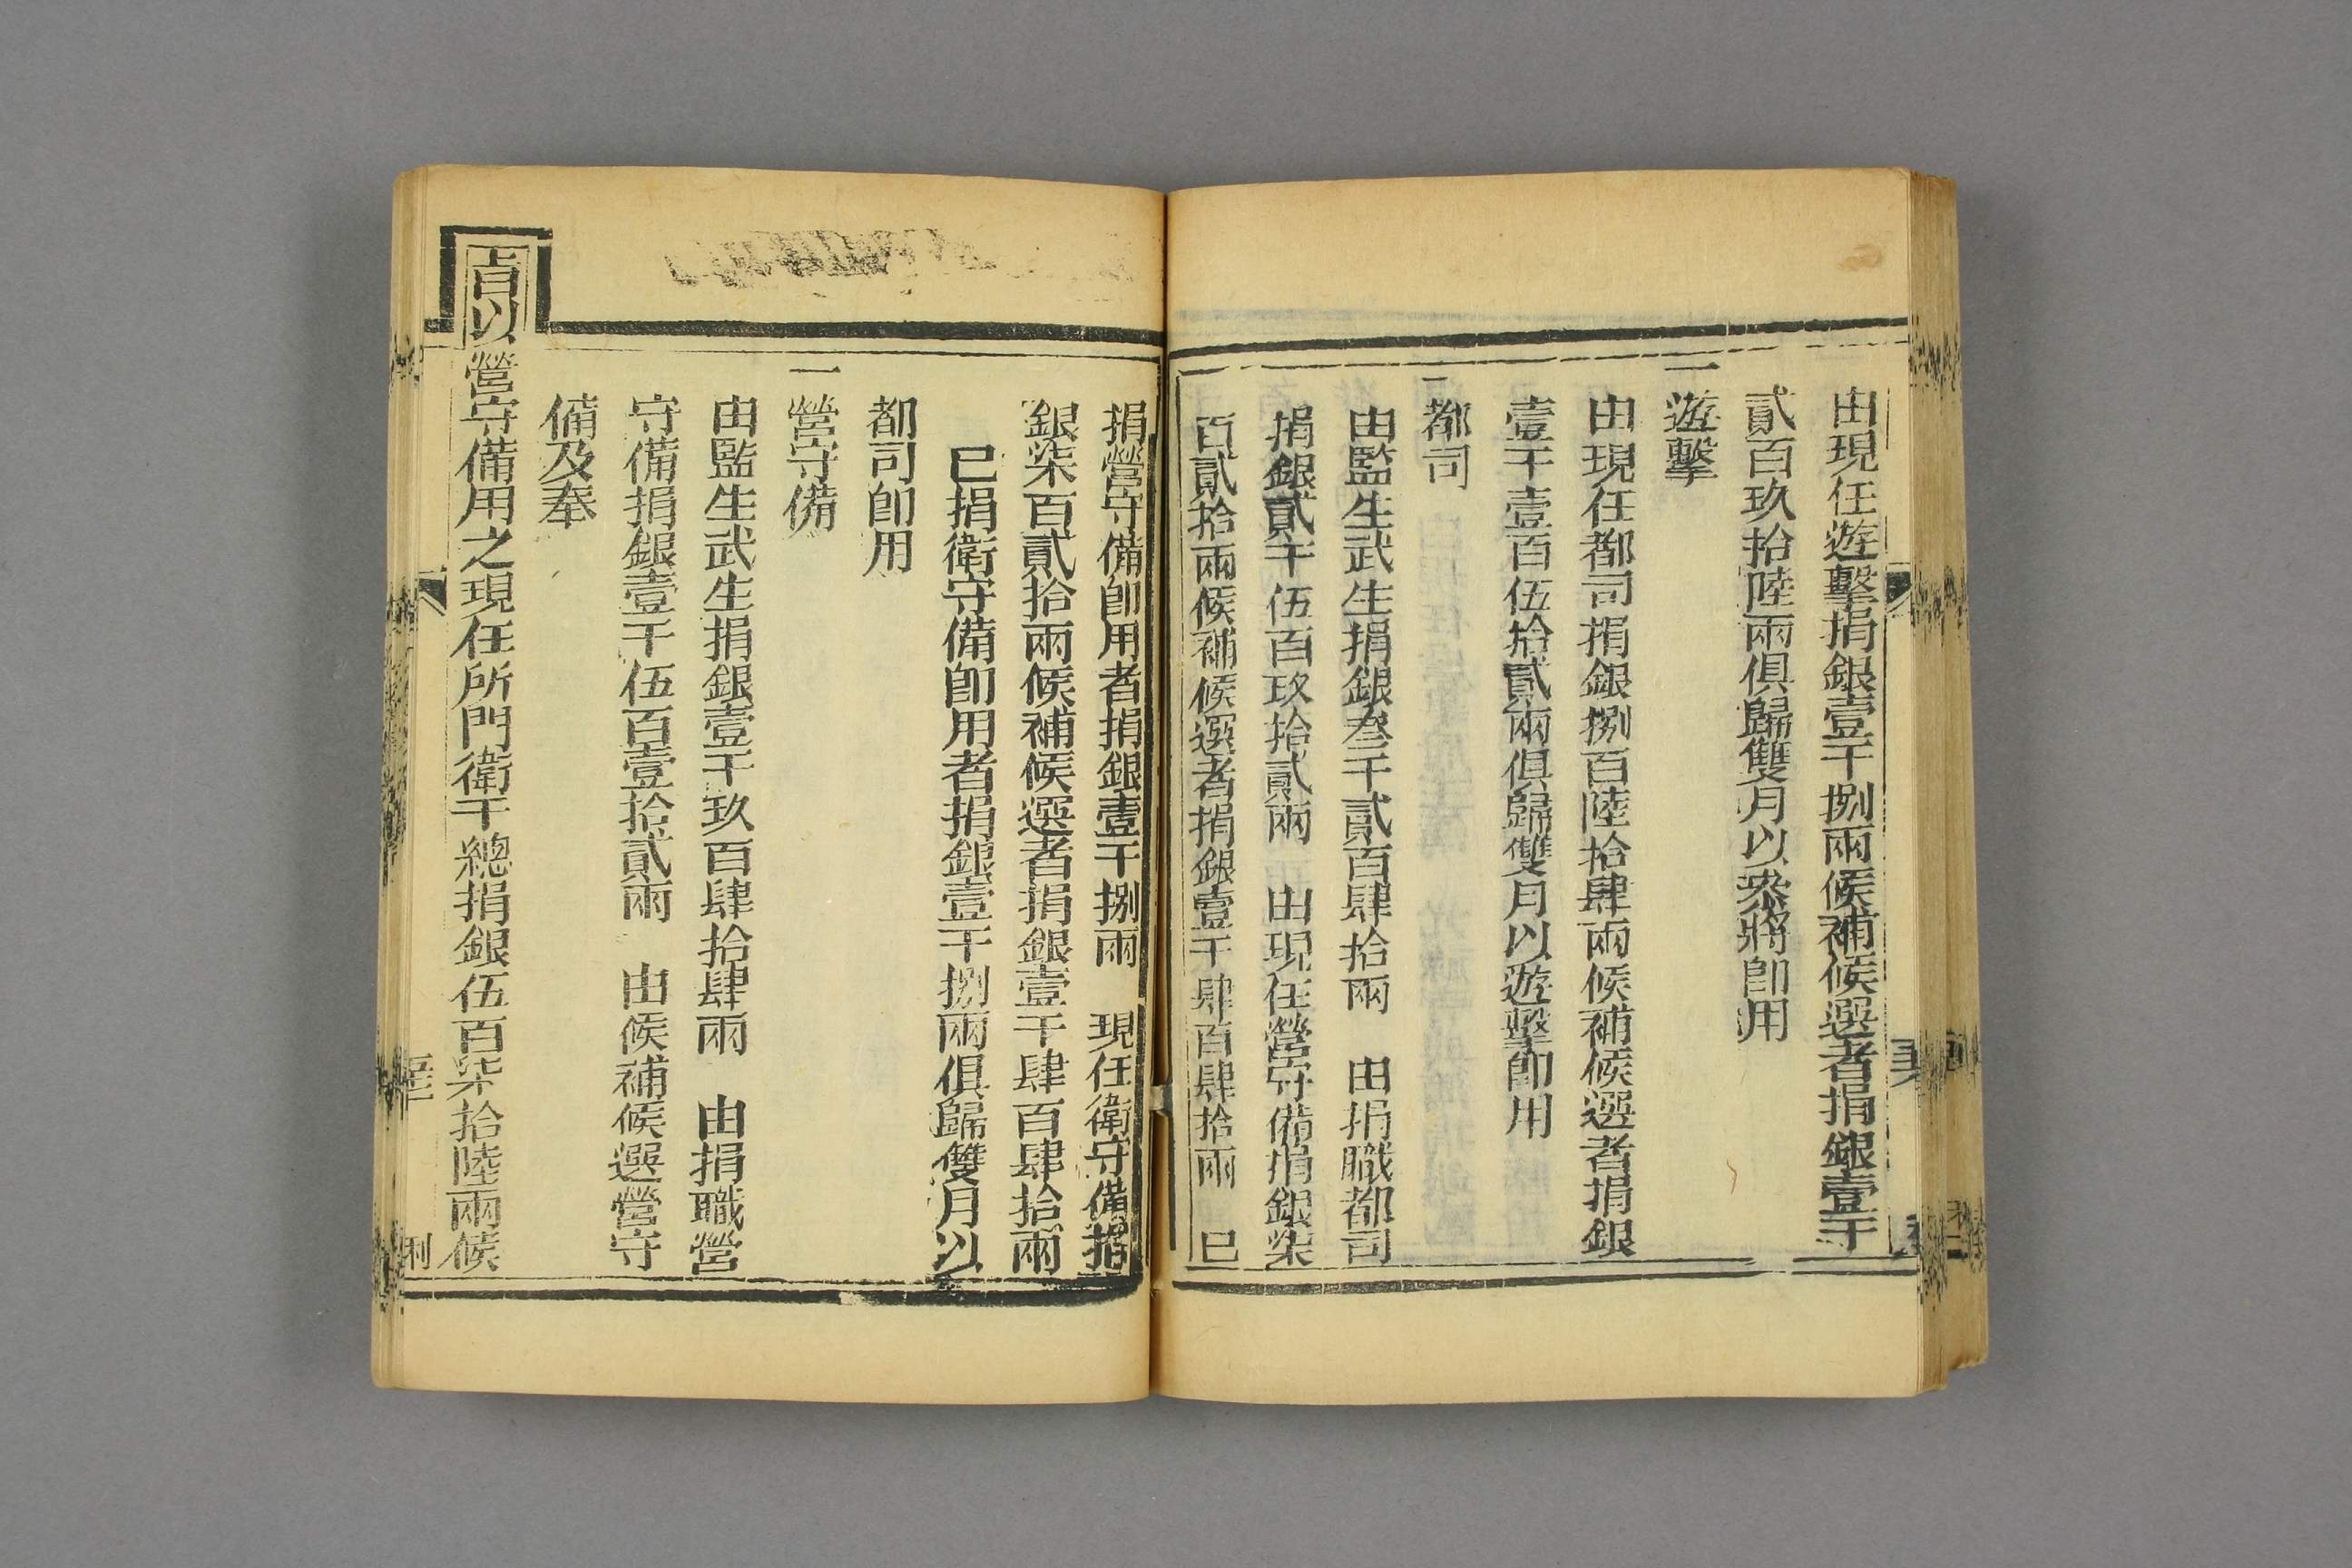 由現任遊擊捐銀壹千捌兩候補候選者捐銀壹千
貳百玖拾陸兩俱歸雙月以叅將卽用
一遊擊
由現任都司捐銀捌百陸拾肆兩候補候選者捐銀
壹千壹百伍拾貳兩俱歸雙月以遊擊卽用
一都司
由監生武生捐銀叄千貳百肆拾兩　由捐職都司
捐銀貳千伍百玖拾貳兩　由現任營守備捐銀柒
百貳拾兩候補候選者捐銀壹千肆百肆拾兩　已
捐營守備卽用者捐銀壹千捌兩　現任衛守備捐
銀柒百貳拾兩候補候選者捐銀壹千肆百肆拾兩
已捐衛守備卽用者捐銀壹千捌兩俱歸雙月以
都司卽用
一營守備
由監生武生捐銀壹千玖百肆拾肆兩　由捐職營
守備捐銀壹千伍百壹拾貳兩　由候補候選營守
備及奉
旨以營守備用之現任所門衛千總捐銀伍百柒拾陸兩候